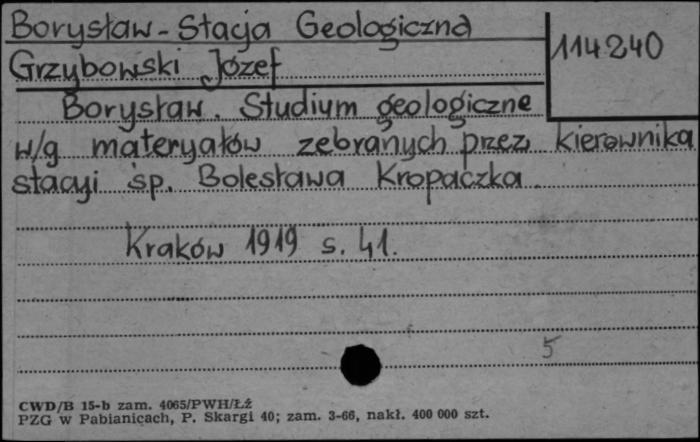 Borysław - Stacja Geologiczna
114240
Grzybowski Józef
Borysław. Studium geologiczne
w/g materyałów zebranych przez kierownika
stacyi śp. Bolesława Kropaczka.
Kraków 1919 s. 41.
5
CWD/B 15-b zam. 4065/PWH/Łź
PZG w Pabianicach, P. Skargi 40; zam. 3-66, nakł. 400 000 szt.